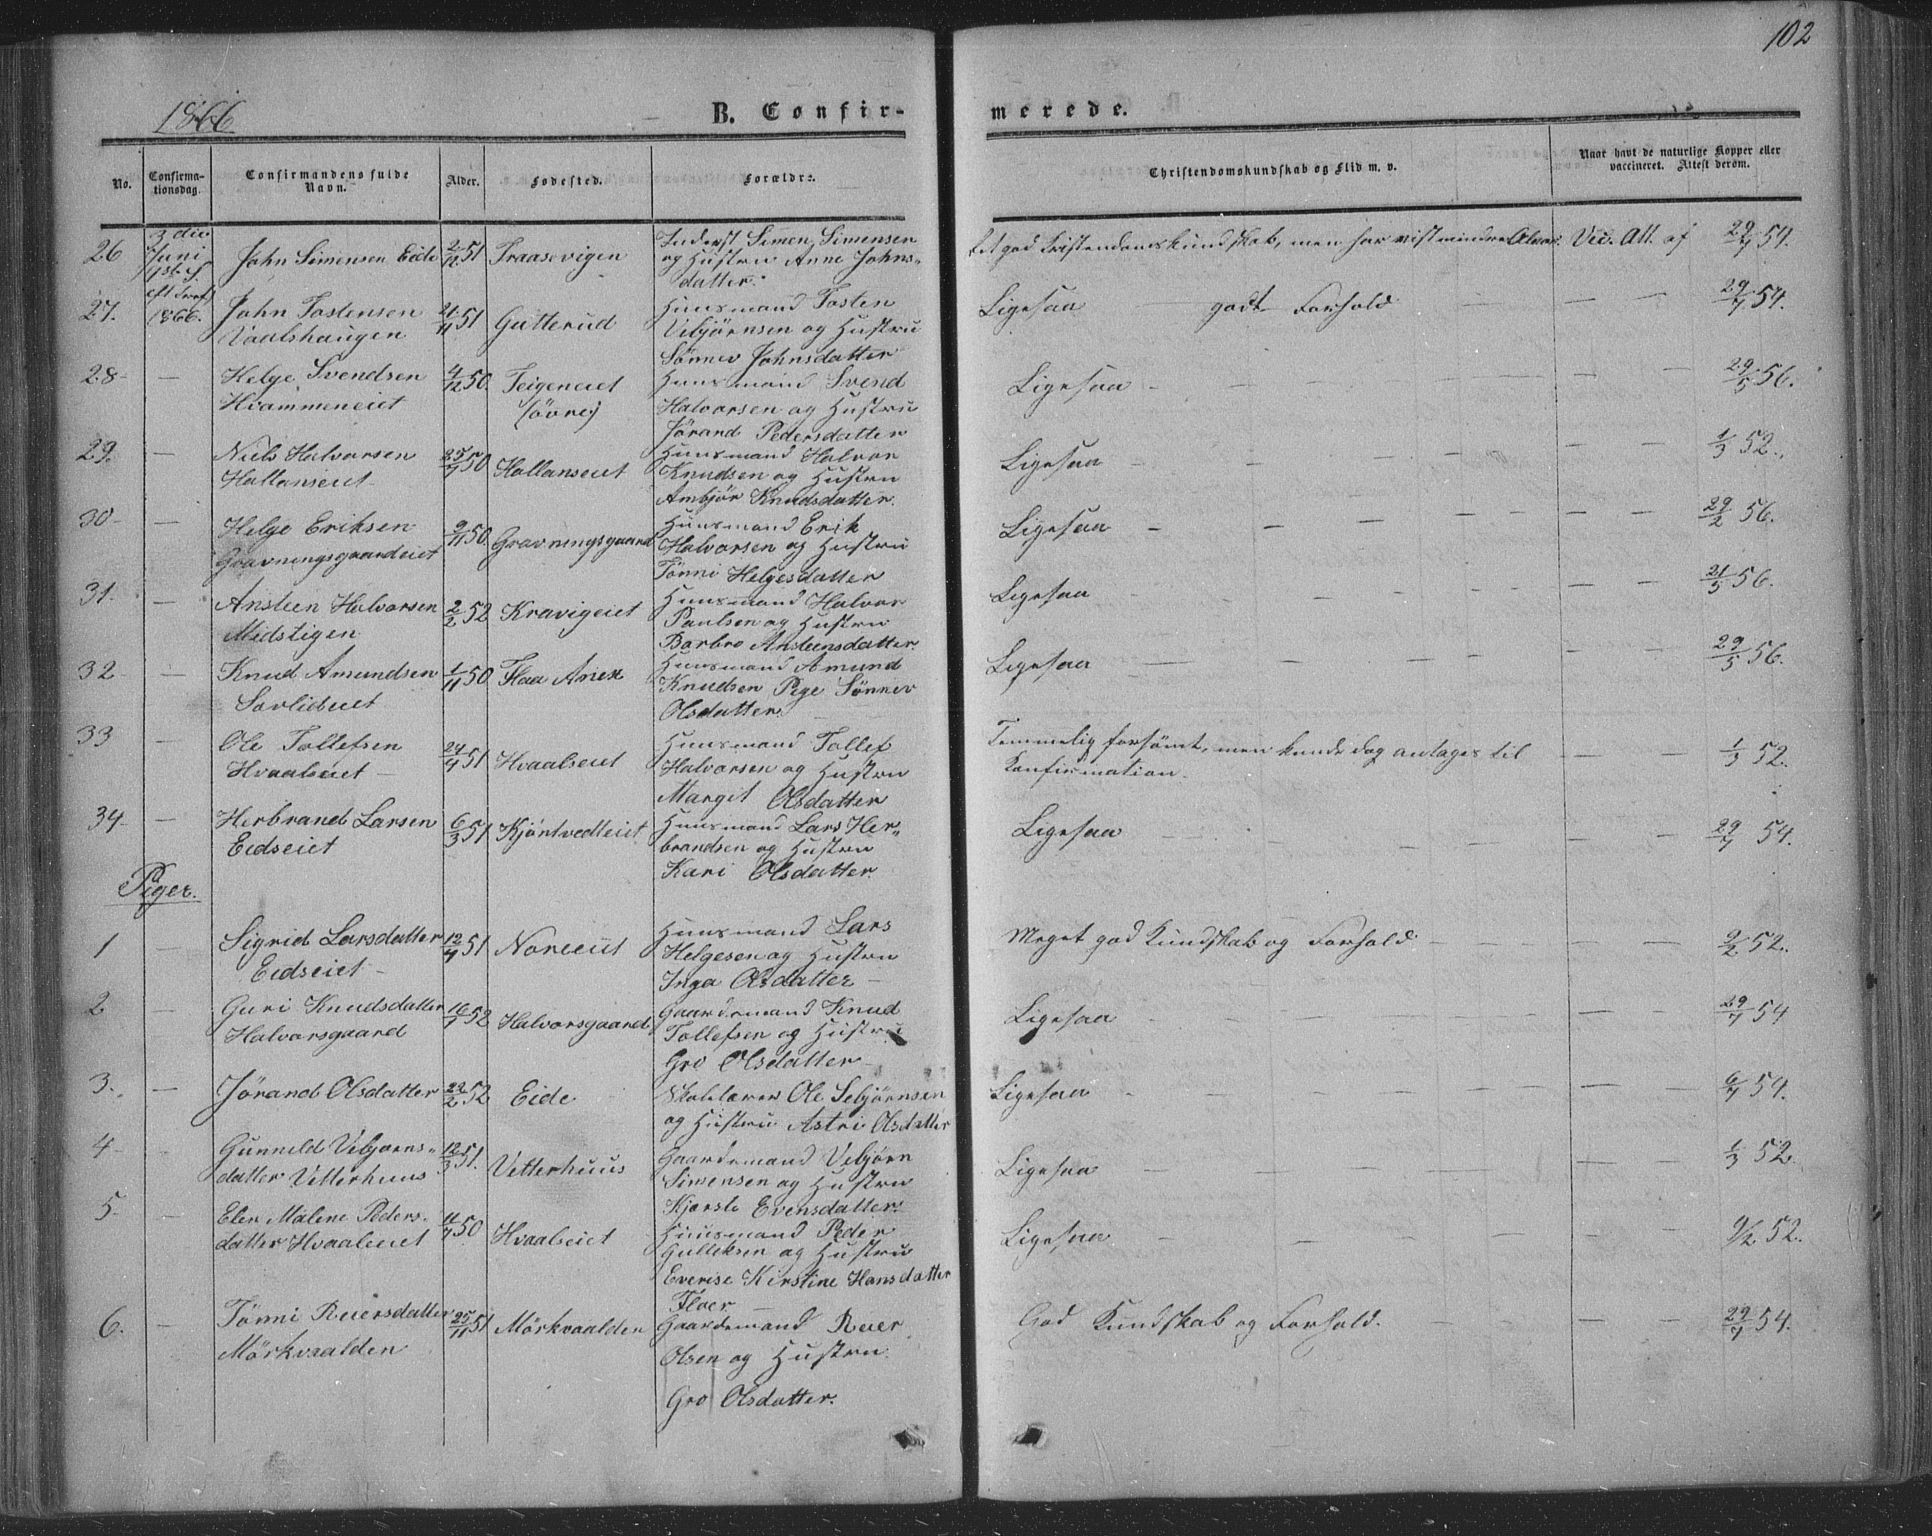 102
1866
B. Confir-
merede.
No.
Confirma-
tionsdag.
Confirmandens fulde
Navn.
Alder.
Fødested.
Forældre.
Christendomskundskab og Flid m. v.
Naar havt de naturlige Kopper eller
vaccineret. Attest derom.
3 die
Juni
1st S
eft Tref
1866.
26 John Simensen Eide 2/12 51 Traasevigen Inderst Simen Simensen
og Hustru Anne Johns-
datter.
god Kristendomskundskab, men har vist mindre Alvor. Vac. Att. af 29/7 54.
27. John Tostensen
Vaalshaugen
21/11 51 Gutterud Huusmand Tosten
Vebjørnsen og Hustru
Sønnev Johnsdatter
Ligesaa godt Forhold 29/7 54.
28 — Helge Svendsen
Hvammeneiet
4/12 50 Teigeneiet
(øvre)
Huusmand Svend
Halvorsen og Hustru
Jørand Pedersdatter
Ligesaa 29/5 56.
29. — Niels Halvorsen
Hallanseiet
25/7 50 Hallanseiet Huusmand Halvor
Knudsen og Hustru
Ambjør Knudsdatter.
Ligesaa 1/3 52.
30 — Helge Eriksen
Gravningsgaardeiet
9/11 50 Gravningsgaard Huusmand Erik
Halvorsen og Hustru
Tønni Helgesdatter
Ligesaa 29/2 56.
31. — Ansteen Halvorsen
Midstigen
2/2 52 Kravigeiet Huusmand Halvor
Paulsen og Hustru
Barbro Ansteensdatter
Ligesaa 21/5 56.
32 — Knud Amundsen
Sorlideiet
1/11 50 Flaa Anex Huusmand Amund
Knudsen Pige Sønnev
Olsdatter
Ligesaa 29/5 56.
33 — Ole Tollefsen
Hvaalseiet
24/4 51 Hvaalseiet Huusmand Tollef
Halvorsen og Hustru
Margit Olsdatter
Temmelig forsømt, men kunde dog antages til
Konfirmation.
1/3 52.
34 — Herbrand Larsen
Eidseiet
6/3 51 Kjøntvedteiet Huusmand Lars Her-
brandsen og Hustru
Kari Olsdatter
Ligesaa 29/7 54.
Piger.
1 — Sigrid Larsdatter
Eidseiet
12/4 51 Noreeiet Huusmand Lars
Helgesen og Hustru
Inga Olsdatter
Meget god Kundskab og Forhold 2/2 52.
2 — Guri Knudsdatter
Halvorsgaard
16/7 52 Halvorsgaard Gaardemand Knud
Tollefsen og Hustru
Gro Olsdatter
Ligesaa 29/7 54
3. — Jørand Olsdatter 22/2 52 Eide Skolelærer Ole Sebjørnsen
og Hustru Astri Olsdatter
Ligesaa 6/7 54.
4 — Gunneld Vebjørns-
datter Vetterhuus
12/3 51. Vetterhuus Gaardemand Vebjørn
Simensen og Hustru
Kjersti Evensdatter.
Ligesaa 1/3 52.
5. — Elen Malene Peders-
datter Hvaaleiet
11/7 50 Hvaalseiet Huusmand Peder
Gulleksen og Hustru
Everise Kirstine Hansdatter
Floer.
Ligesaa 9/2 52.
6. — Tønni Reiersdatter
Mörkvaalden
25/11 51 Mörkvaalden Gaardemand Reier
Olsen og Hustru
Gro Olsdatter.
God Kundskab og Forhold. 29/7 54.